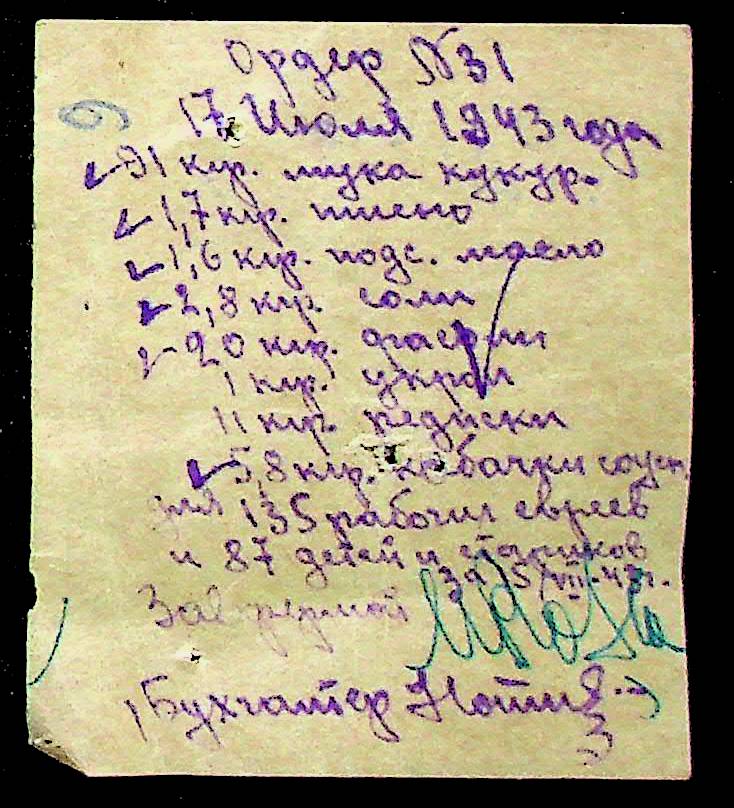 Ордер N31
17 Июля 1943 года
91 кгр. мука кукур.
1,7 кгр. пшено
1,6 кгр. подс. масло
2,8 кгр. соли
20 кгр. фасоли
1 кгр. укроп
11 кгр. редиски
5,8 кгр. кабачки
для 135 рабочих евреев
и 87 детей и стариков
за 15/VII-43г.
Зав фермой
Бухгалтер